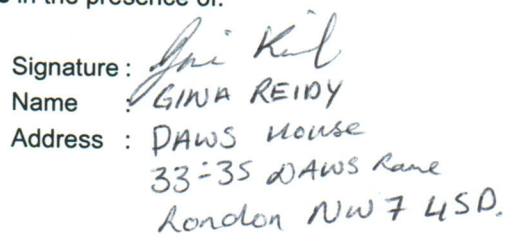 in the presence of:
Signature :
Name : GINA REIDY
Address : DAWS House
33-35 DAWS Lane
London NW7 4SD.